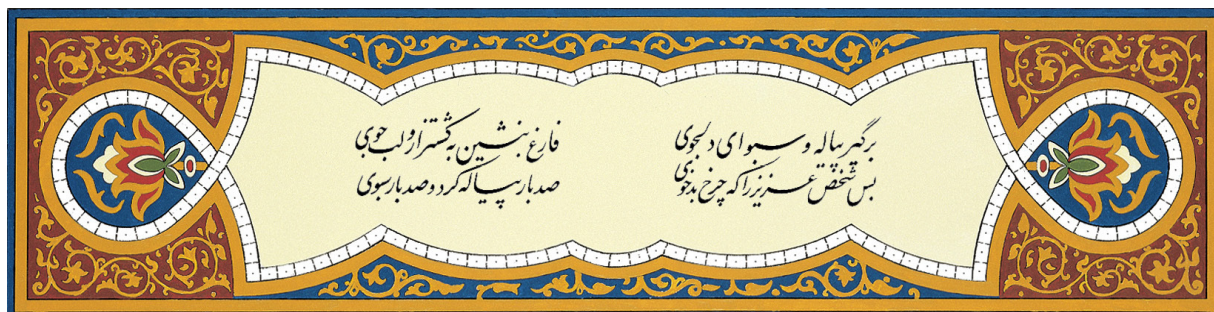 برگیر پیاله و سبو ای دلجوی فارغ بنشین به کشتزار و لب جوی
بس شخص عزیز را که چرخ بدخوی صد بار پیاله کرد و صد بار سبوی